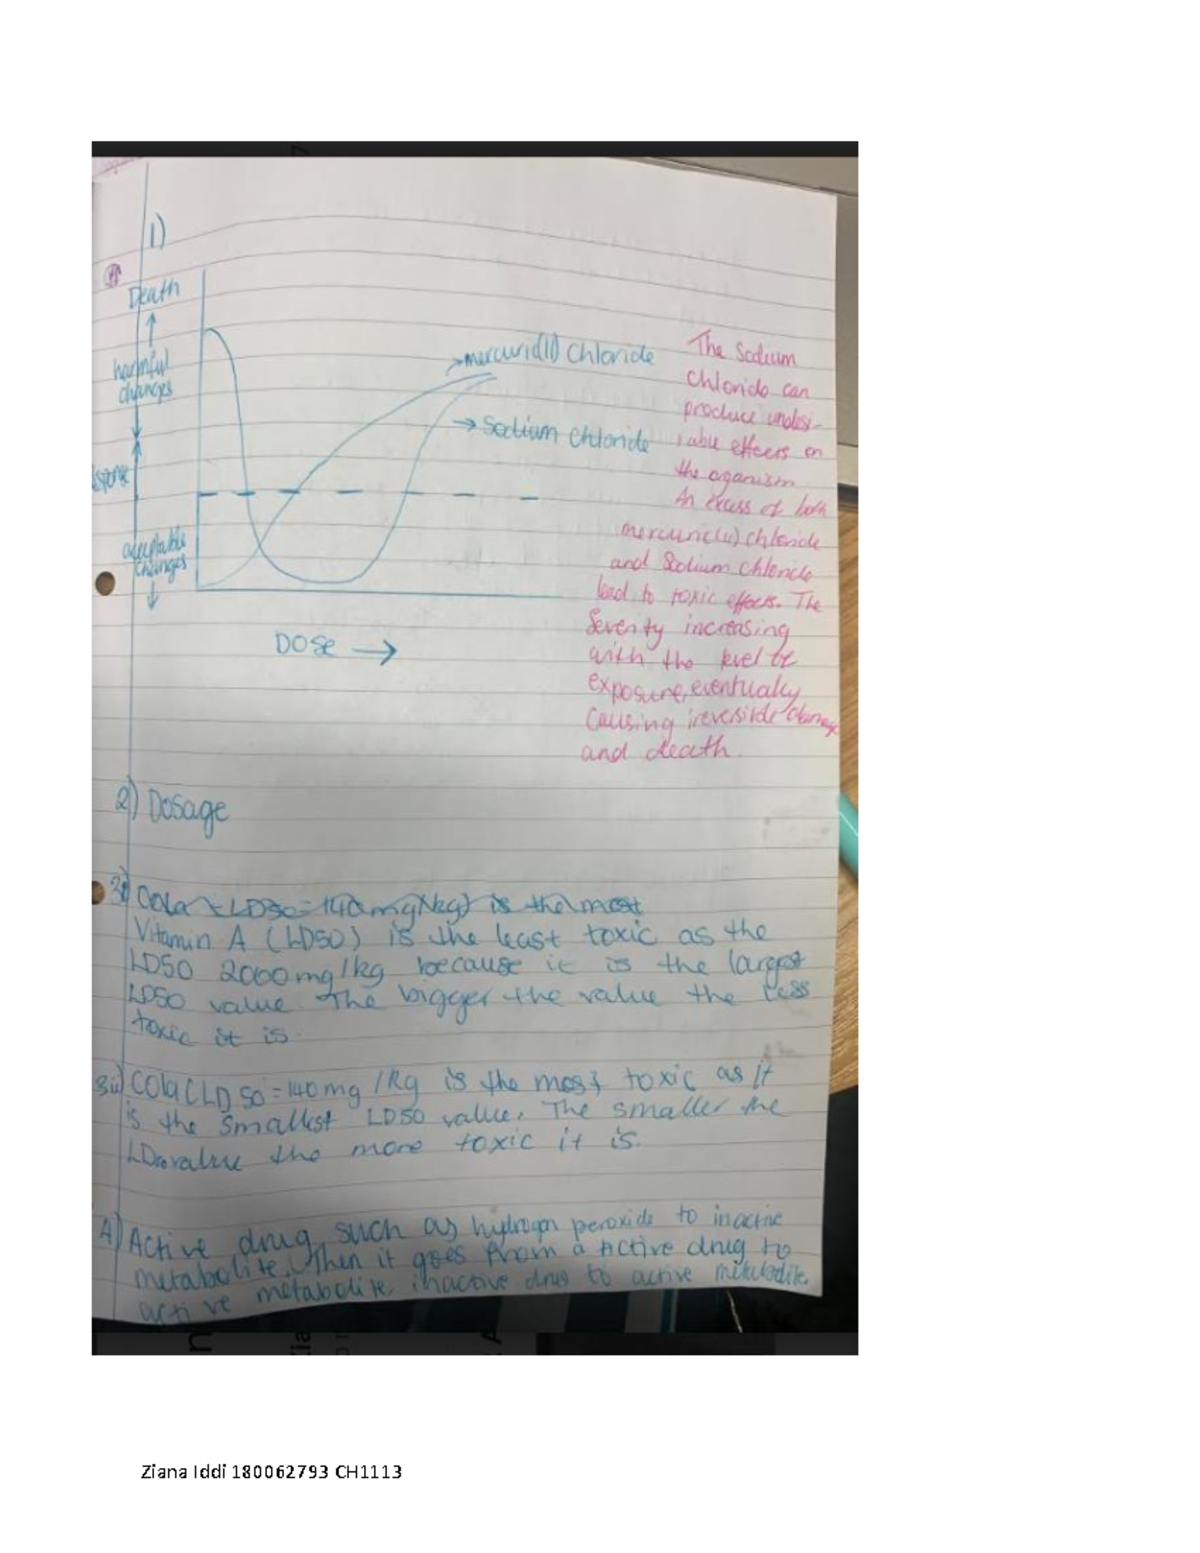 1)
Death
harmful
changes
acceptable
changes
mercuric(II) Chloride
Sodium Chloride
DOSE
The Sodium
Chloride can
produce undesi-
rable effects on
the oganism
An excess of both
mercuric(II) chloride
and Sodium Chloride
lead to toxic effects. The
Severity increasing
with the level of
exposure, eventually
causing ireversible damage
and death.
2) Dosage
3i) Cola LD50=140mg/kg) is the most
Vitamin A (LD50) is the least toxic as the
LD50 2000mg/kg because it is the largest
LD50 value The bigger the value the less
toxic it is.
3ii) Cola (LD50=140mg/kg is the most toxic as it
is the Smallest LD50 value. The smaller the
LD50 value the more toxic it is.
4) Active drug such as hydrogen peroxide to inactive
metabolite. When it goes from a active drug to
active metabolite, inactive drug to active metabolite.
Ziana Iddi 180062793 CH1113